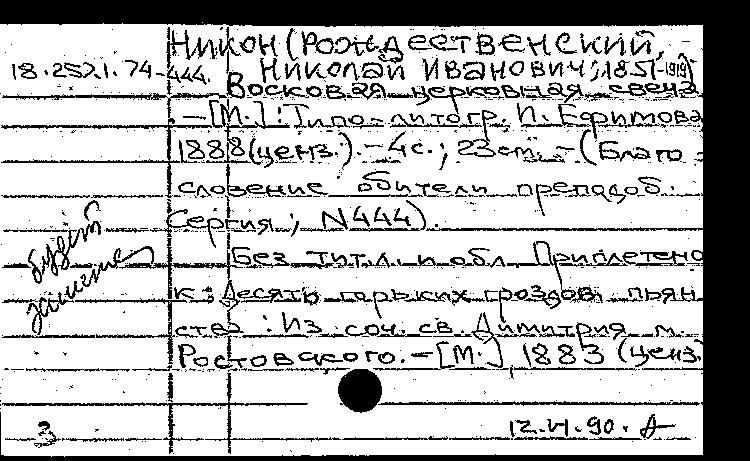 Никон (Рождественский,
18.257.1.74-444. Николай Иванович; 1851-1919)
Восковая церковная свеча
. — [М.] : Типо-литогр. И. Ефимова
1888 (ценз.). — 4 с.; 23 см. — (Благо-
словение обители преподоб.
Сергия; N444).
Без тит.л. и обл. Приплетено
к: Десять горьких гроздов пьян
ства : Из соч. св. Димитрия м.
Ростовского. — [М.], 1883 (ценз.
будет
3 12.VI.90.